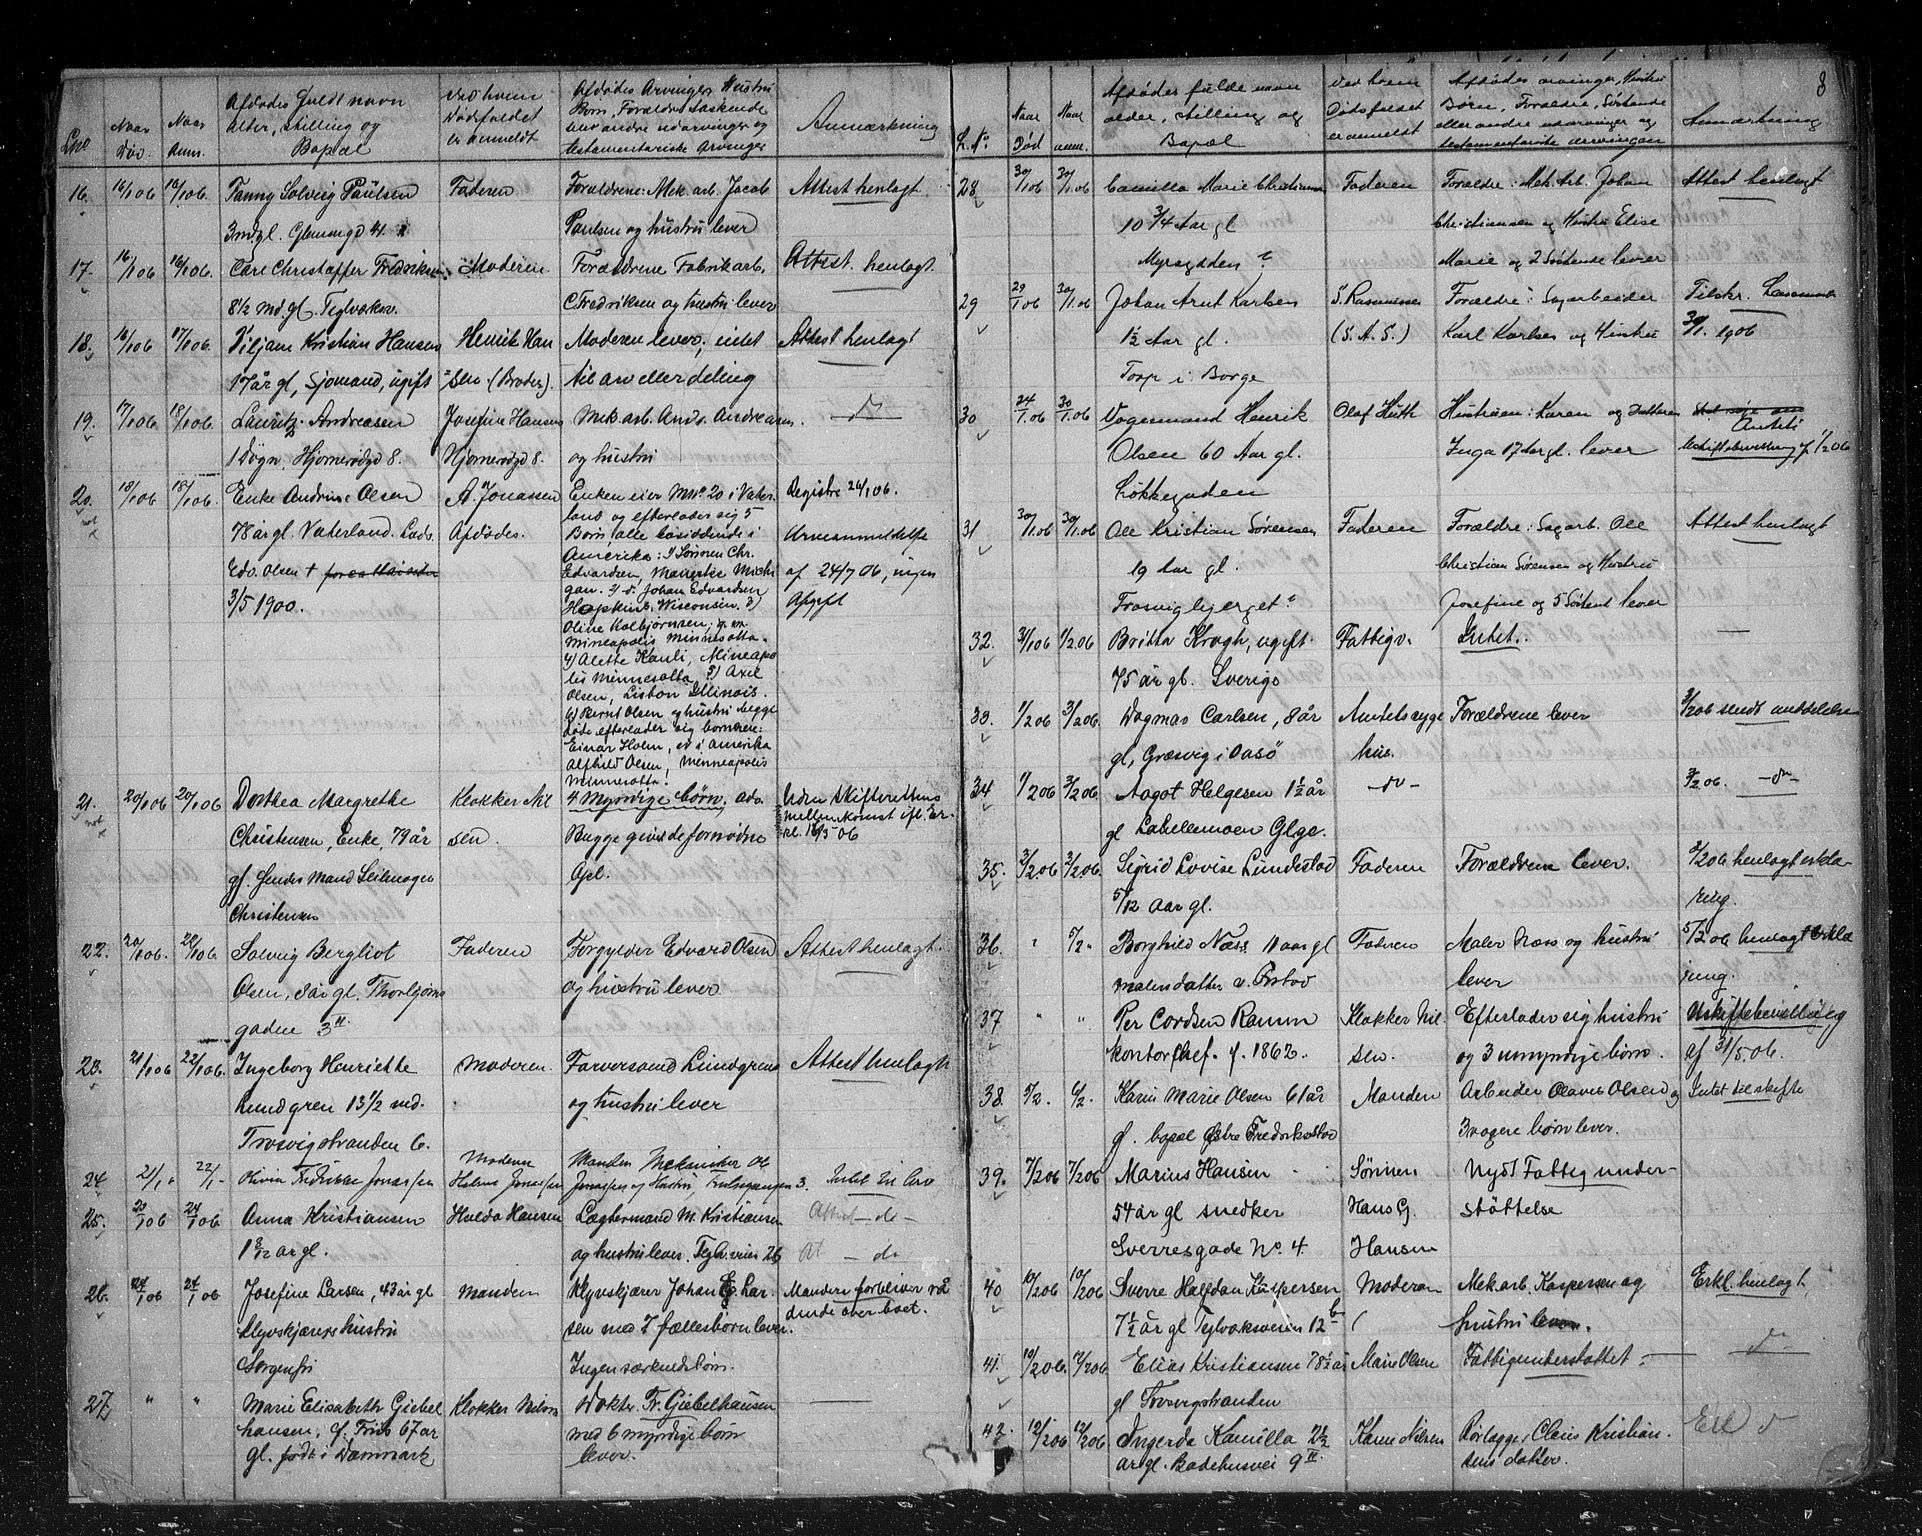 Lno
Naar
Død.
Naar
Anm.
Afdødes fuldt navn
alter, stilling og
Bopæl
Ved hvem
Dødsfaldet
er anmeldt
Afdødes Arvinger Hustru
Børn, Forældre Søskende
eller andre udarvinger og
testamentariske Arvinger
Anmærkning
16. 16/1 06 16/1 06. Fanny Solveig Paulsen Faderen Forældrene: Mek. arb. Jacob Attest henlagt
3 md gl. Glemengd 41. Paulsen og hustru lever
17. 16/1 06 16/1 06. Carl Christoffer Fredriksen Moderen Forældrene Fabrikarb. Attest henlagt
8 1/2 md. gl. Teglværksv. C. Fredriksen og hustru lever
18. 16/1 06 17/1 06. Viljam Kristian Hansen Henrik Han Moderen lever, intet Attest henlagt
17 år gl, Sjømand, ugift sen (Broder). til arv eller deling
19. 17/1 06 18/1 06. Lauritz Andreasen Josefine Hansen Mek arb. Ands. Andreasen. — do —
1 Døgn, Hjørnerødgd 8. Hjørnerødgd 8. og hustru
20. 18/1 06 18/1 06. Enke Andrine Olsen A. Jonassen Enken eier Mno. 20 i Vater- Registr 26/1 06.
land og efterlader sig 5
78 år gl. Vaterland. Afdødes. Børn, alle bosiddende i Urneanmeldelse
Amerika: 1) Sønnen Chr.
Edv. Olsen † Edvardsen, Manestee Michi af 24/7 06, ingen
gan. 2) d. Johan Edvardsen
3/5 1900. Hopkins, Wisconsin. 3) Afgift
Oline Kolbjørnsen,
Mineapolis Minnesotta.
4) Alette Kauli, Mineapo
lis Minnesotta 5) Axel
Olsen, Lisbon Illinois.
6) Bernt Olsen og hustru begge
døde efterlader sig børnene:
Einar Holm, er i Amerika
Alfhild Olsen, Minneapolis
Minnesotta.
21. 20/1 06 20/1 06 Dorthea Margrethe Klokker Nil 4 myndige børn, adv. Uden skifterettens
mellemkomst ifl. Er-
Christensen, Enke, 79 år sen. Bugge giver de fornødne kl. 16/5 06
gl. hendes Mand Seilmager Opl.
Christensen
22. 20/1 06. 20/1 06 Solveig Bergliot Faderen Forgylder Edvard Olsen Attest henlagt.
Olsen, 8 år gl. Thorbjørns og hustru lever
gaden 3 II
23. 21/1 06 22/1 06. Ingeborg Henriette Moderen. Farversvend Lundgren Attest henlagt
Lundgren 13 1/2 md. og hustru lever
Trosvigstranden 6.
24. 21/1 22/1 Fredrikke Jonassen Moderen Manden Mekaniker
Helene Jonassen Jonassen og Hustru, 3. Intet
25. 23/1 06 24/1 06 Anna Kristiansen Hulda Hansen Lægtermand M. Kristiansen Attest — do —
1 3/12 år gl. og hustru lever. Teglv. veien 26 — do
26. 24/1 06 24/1 06 Josefine Larsen, 43 år gl Manden Klyvskjærer Johan E. Lar Manden forbliver rå
Klyvskjærers hustru sen med 7 fællesbørn lever. dende over boet.
Sorgenfri Ingen særkuldsbørn.
27. " " Marie Elisabeth Giebel Klokker Nilsen Dokter Fr. Giebelhausen —
hansen, f. Friis 67 år med 6 myndige børn
gl. født i Danmark lever.
8
L. No.
Naar
Død
Naar
anm.
Afdødes fulde navn
alder, stilling og
Bopæl
Ved hvem
Dødsfaldet
er anmeldt
Afdødes arvinger, Hustru
Børn, Forældre, Søskende
eller andre udarvinger og
testamentariske arvinger
Anmærkning
28 30/1 06 30/1 06. Camilla Marie Christiansen Faderen Forældre: Mek. Arb. Johan Attest henlagt
10 3/4 Aar gl Christiansen og Hustru Elise
Myragaden ? Marie og 2 Søskende lever
29 29/1 06 30/1 06 Johan Arnt Karlsen S. Rasmussen Forældre: Sagarbeider Tilskr.
1 1/2 Aar gl. (S. A. S.) Karl Karlsen og Hustru 30/1. 1906
Torp i Borge
30 24/1 06 30/1 06. Vognmand Henrik Olaf Huth Hustruen: Karen og Datteren
Olsen 60 Aar gl. Inga 17 Aar gl. lever Uskiftebevilling 1/2 06
Løkkegaden
31 30/1 06 30/1 06. Ole Kristian Sørensen Faderen Forældre: Sagarb. Ole Attest henlagt
19 Aar gl. Christian Sørensen og Hustru
Trosvigbjerget ? Josefine og 5 Søskend lever
32. 31/1 06 1/2 06 Britta Krogh, ugift. Fattigv. Intet. —
75 år gl. Sverige
33. 1/2 06 3/2 06. Dagmar Carlsen, 8 år Amtetssyge Forældrene lever 3/2 06 sendt meddelelse
gl, Græsvig i Onsø hus.
34 1/2 06 3/2 06. Aagot Helgesen 1 1/2 år — do — 3/2 06. — do —
gl Labellemoen Glge.
35. 3/2 06 3/2 06. Sigrid Lovise Lundestad Faderen Forældrene lever. 3/2 06 henlagt erklæ-
5/12 Aar gl. ring.
36. " 5/2 " Borghild Næss 11 aar gl Faderen Maler Næss og hustru 5/2 06 henlagt erklæ
malerdatter lever ring.
37 " " Per Cordsen Ramm Klokker Nil. Efterlader sig hustru Uskiftebevilling
kontorchef. f. 1862. sen. og 3 umyndige børn. af 31/5. 06.
38. 5/2. 6/2. Karen Marie Olsen 61 år Manden Arbeider Olaves Olsen og Intet til skifte
gl. bopæl Østre Fredrikstad 3 vogsne børn lever.
39. 7/2 06 7/2 06 Marius Hansen Sønnen Nydt Fattigunder-
54 år gl snedker Hans G. støttelse
Sverresgade No. 4. Hansen
40 10/2 06 10/2 06 Sverre Halfdan Kaspersen Moderen Mek arb. Kaspersen og Erkl. henlagt
7 1/2 år gl Teglværksveien 12 b hustru lever.
41. 10/2 06. 12/2 06 Elias Kristiansen 78 1/2 år Marie Olsen Fattigunderstøttet. — — do —
gl Trosvigstranden
42. 12/2 06 12/2 06. Ingerda Kamilla 2 1/2 Karen Nilsen Rørlægger Claus Kristian- Erl do
år gl. Badehusvei 9 II. sens datter.